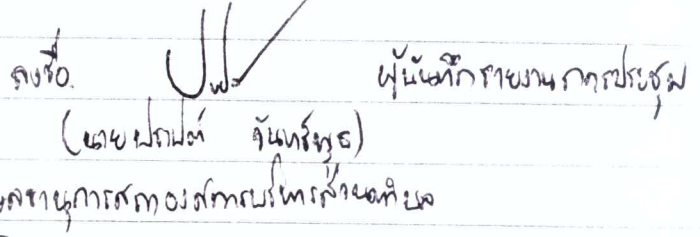 ลงชื่อ. ผู้บันทึกรายงานการประชุม
(นายปราปต์ จันทร์พุธ)
เลขานุการสภาองค์การบริหารส่วนตำบล